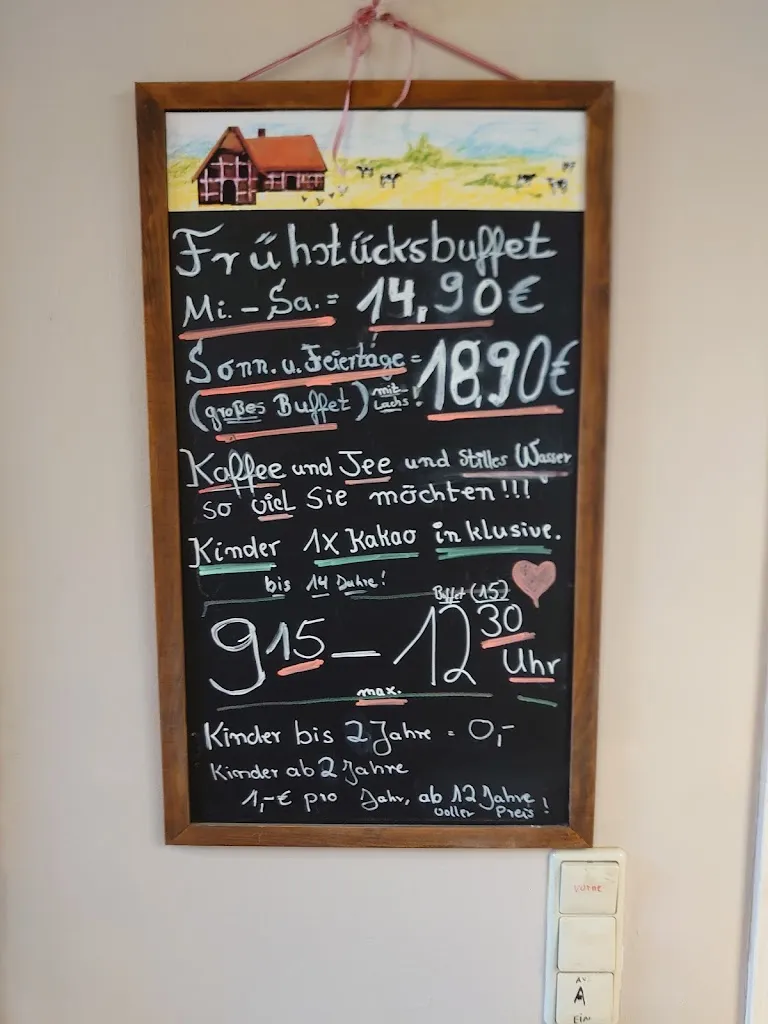 Frühstücksbuffet
Mi. - Sa. = 14,90€
Sonn. u. Feiertage = 18,90€
(großes Buffet) mit Lachs!
Kaffee und Tee und Stilles Wasser
so viel Sie möchten!!!
Kinder 1x Kakao inklusive.
bis 14 Jahre!
Buffet (15)
9 15 - 12 30
Uhr
max.
Kinder bis 2 Jahre = 0,-
Kinder ab 2 Jahre
1,-€ pro Jahr, ab 12 Jahre
voller Preis!
A